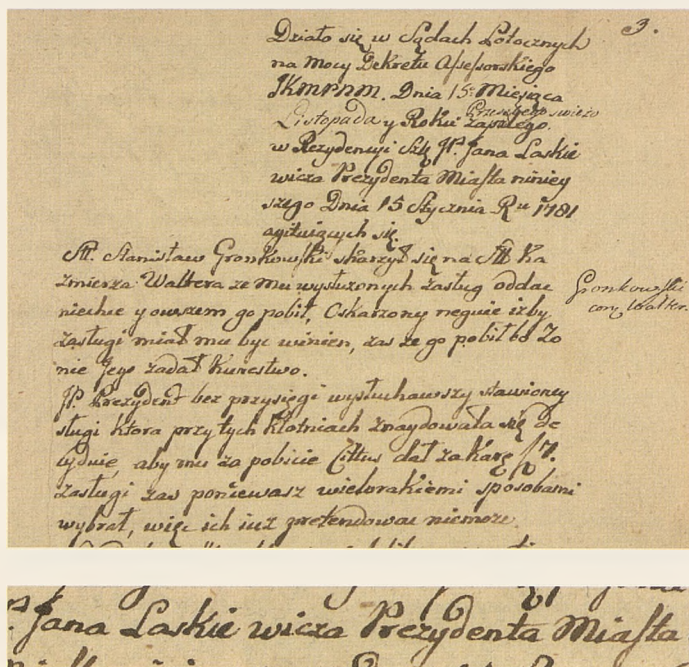 3.
Działo się w Sądach Potocznych
na mocy Dekretu Assessorskiego
JKMPNM. Dnia 15. Miesiąca
Listopada y Roku Przeszłego swieżo
zaszłego.
w Rezydencyi Szl. JP. Jana Laskie
wicza Prezydenta Miasta niniey
szego Dnia 15 Stycznia Ru 1781
agituiących się.
Stt. Stanisław Gronkowski skarzył się na Stt Ka
zmierza Waltera ze mu wysłużonych zasług oddac
niechce y owszem go pobił, Oskarzony neguie izby
zasługi miał mu byc winien, zas ze go pobił bo Zo
nie Jego zadał kurestwo.
Gronkowski
con Walter.
JP. Prezydent bez przysięgi wysłuchawszy stawioney
sługi ktora przy tych kłotniach znaydowała się de
cyduie, aby mu za pobicie Cittus dał za karę f 7.
zasługi zas poniewasz wielorakiemi sposobami
wybrał, więc ich iuz pretendowac niemoze.
Jana Laskie wicza Prezydenta Miasta